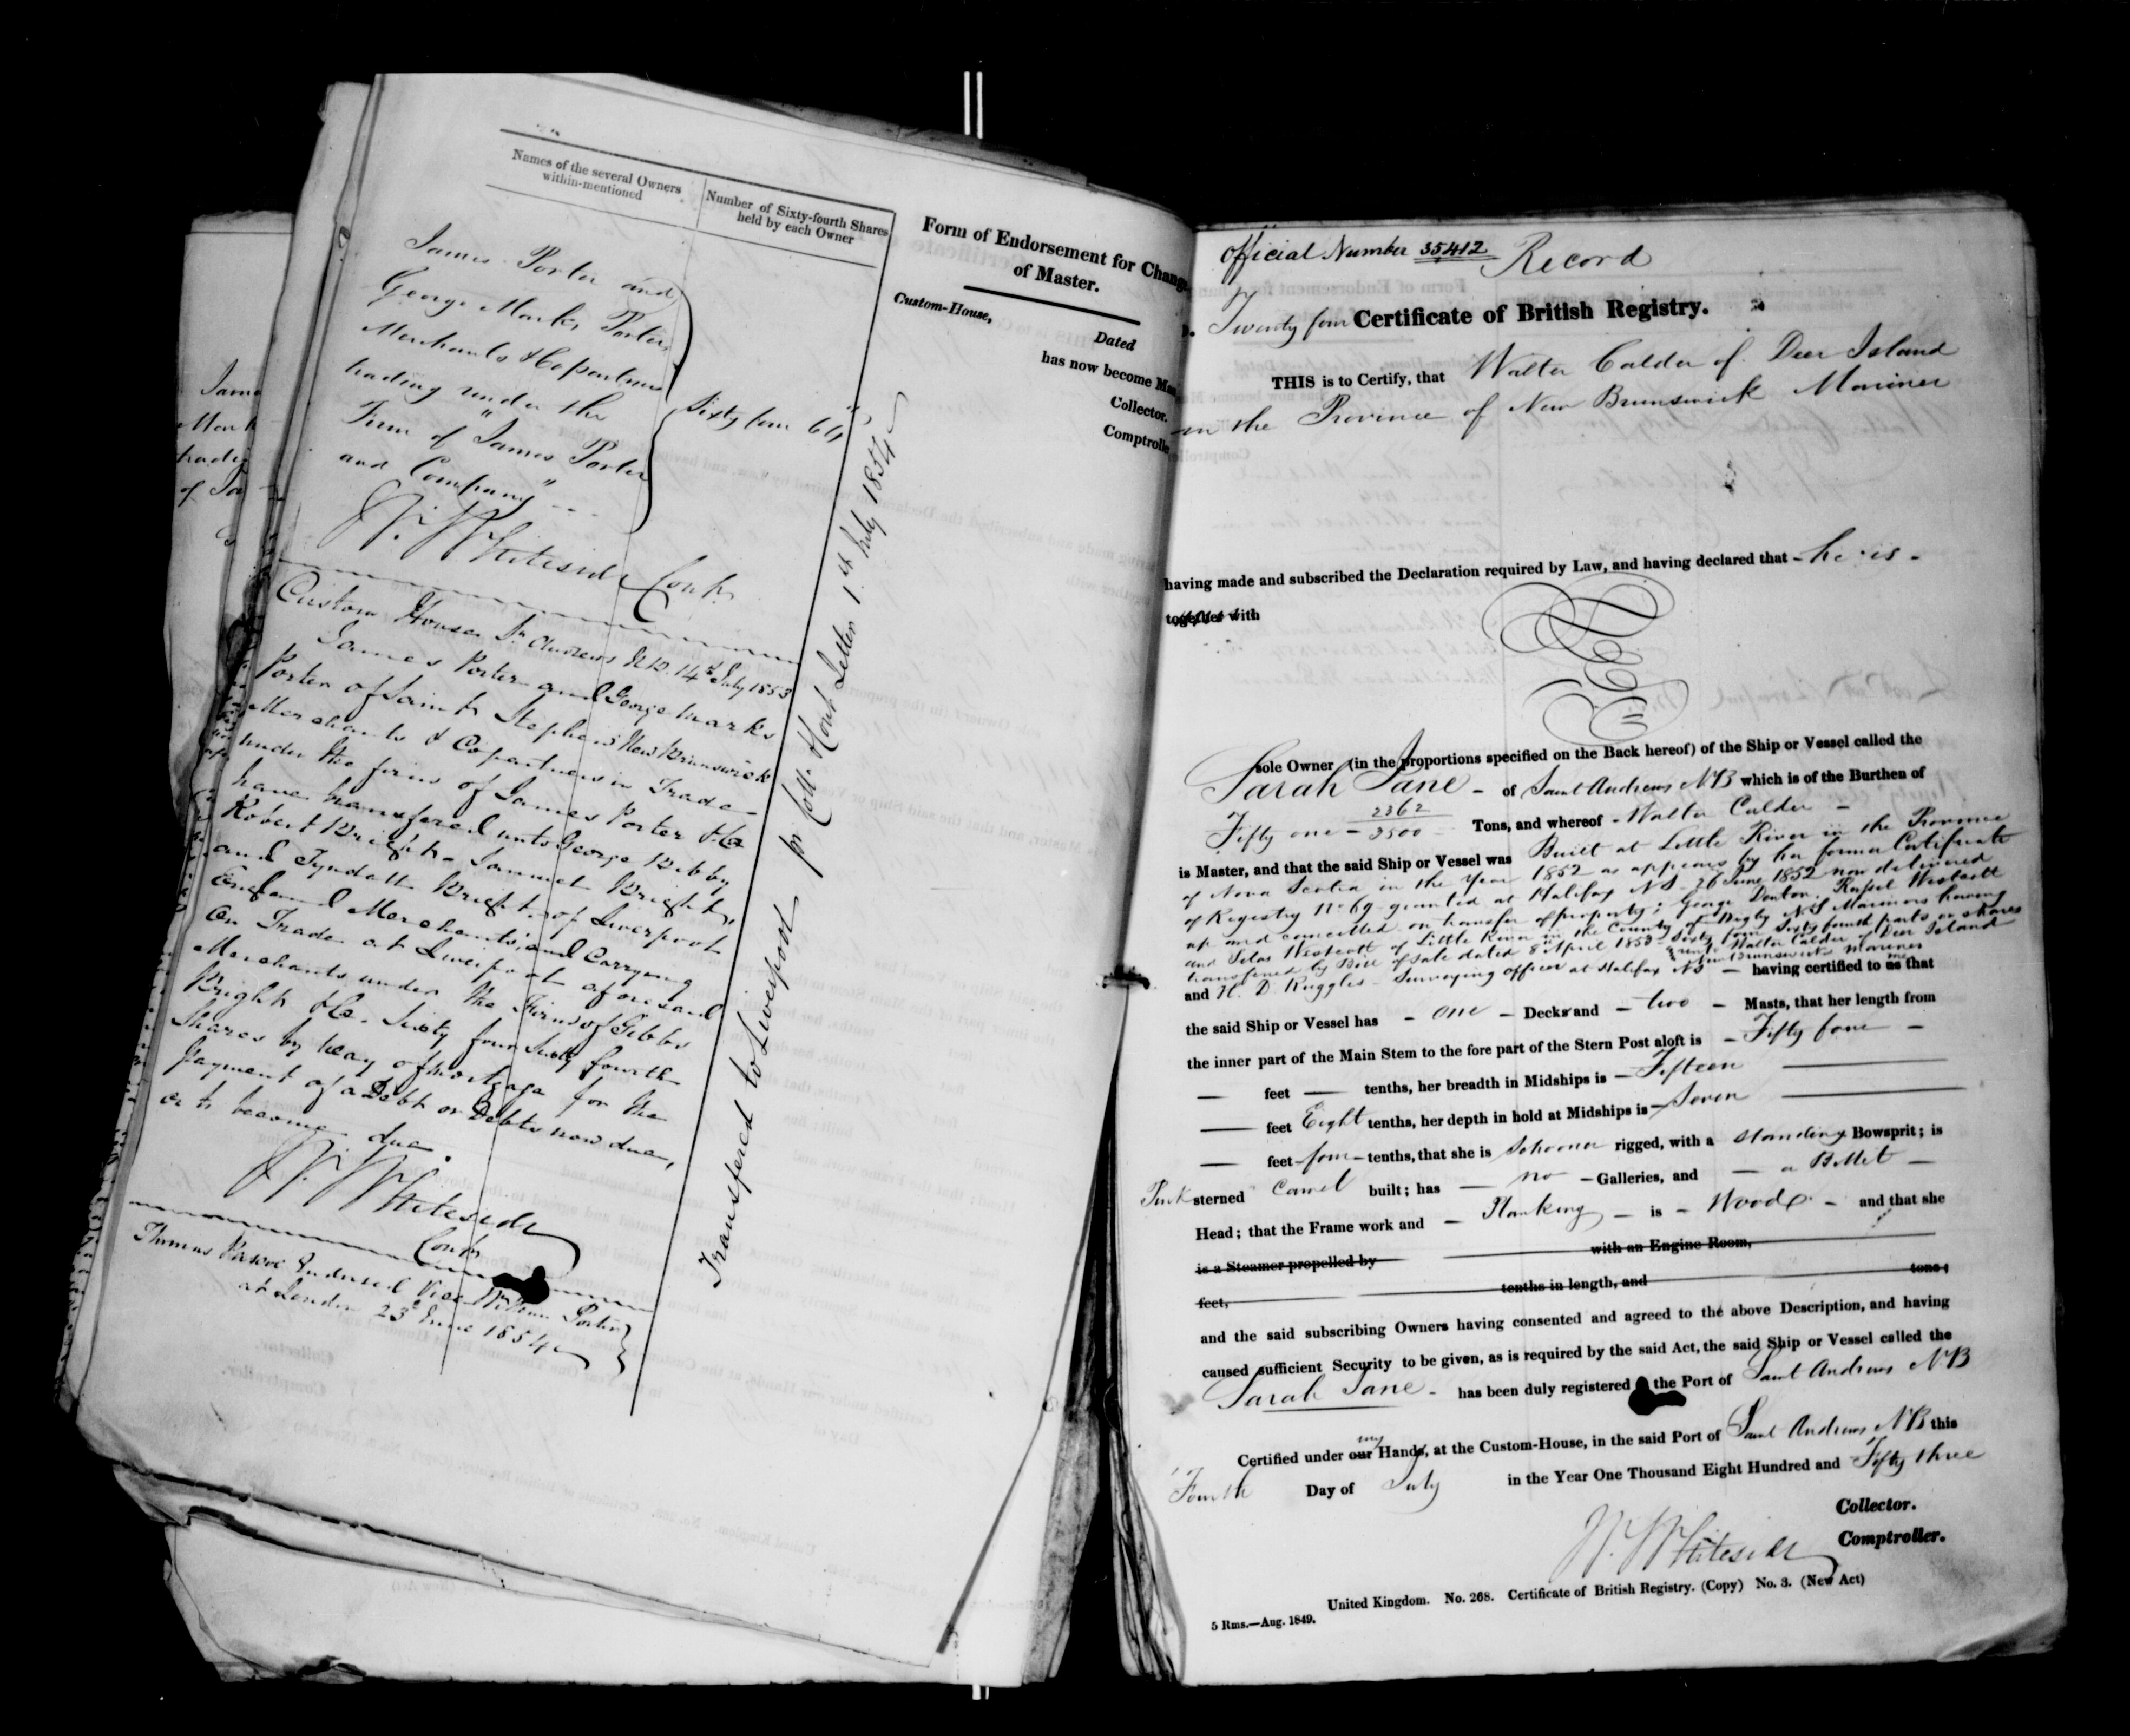 Names of the several Owners
within-mentioned
Number of Sixty-fourth Shares
held by each Owner
James Porter and
George Marks Porter
Merchants & Copartners
trading under the
Firm of "James Porter
and Company"
Sixty four 64
W. Whiteside Compr
Custom House St Andrews NB. 14th July 1853
James Porter and George Marks
Porter of Saint Stephens New Brunswick
Merchants & Copartners in Trade
under the firm of James Porter & Co
have transfered unto George
Robert Bright Samuel Bright,
and Tyndall Bright of Liverpool
England Merchants, and Carrying
on Trade at Liverpool aforesaid
Merchants under the Firm of Gibbs
Bright & Co. Sixty four Sixty fourth
Shares by way of mortgage for the
payment of a Debt or Debts now due,
or to become due.
W. Whiteside
Compr
Thomas Endorsed Vice William Porter
at London 23d June 1854
Transfered to Liverpool pr Letter 1st July 1854
Form of Endorsement for Change
of Master.
Custom-House,
Dated
has now become
Collector.
James
Official Number 35412 Record
Twenty four Certificate of British Registry.
THIS is to Certify, that Walter Calder of Deer Island
in the Province of New Brunswick Mariner
having made and subscribed the Declaration required by Law, and having declared that he is
together with
Sole Owner (in the proportions specified on the Back hereof) of the Ship or Vessel called the
Sarah Jane of Saint Andrews NB which is of the Burthen of
Fifty one 2362/3500 Tons, and whereof Walter Calder
is Master, and that the said Ship or Vessel was Built at Little River in the Province
of Nova Scotia in the Year 1852 as appears by her former Certificate
of Registry No 69 granted at Halifax NS 26 June 1852 now delivered
up and cancelled on transfer of property; George Denton, Westcott
and Silas Westcott of Little River in the County of Digby NS Mariners having
transferred by Bill of Sale dated 8 April 1853 Sixty four Sixty fourth parts or shares
unto Walter Calder of Deer Island
New Brunswick Mariner
and H. D. Ruggles Surveying officer at Halifax NS having certified to us me that
the said Ship or Vessel has one Decks and two Masts, that her length from
the inner part of the Main Stem to the fore part of the Stern Post aloft is Fifty four
feet tenths, her breadth in Midships is Fifteen
feet Eight tenths, her depth in hold at Midships is Seven
feet four tenths, that she is Schooner rigged, with a standing Bowsprit; is
Pink sterned Carvel built; has no Galleries, and a Billet
Head; that the Frame work and Planking is Wood and that she
is a Steamer propelled by with an Engine Room,
feet, tenths in length, and tons;
and the said subscribing Owners having consented and agreed to the above Description, and having
caused sufficient Security to be given, as is required by the said Act, the said Ship or Vessel called the
Sarah Jane has been duly registered the Port of Saint Andrews NB
Certified under our my Hands, at the Custom-House, in the said Port of Saint Andrews NB this
Fourth Day of July in the Year One Thousand Eight Hundred and Fifty three
Collector.
W. Whiteside Comptroller.
United Kingdom. No. 268. Certificate of British Registry. (Copy) No. 3. (New Act)
5 Rms.—Aug. 1849.